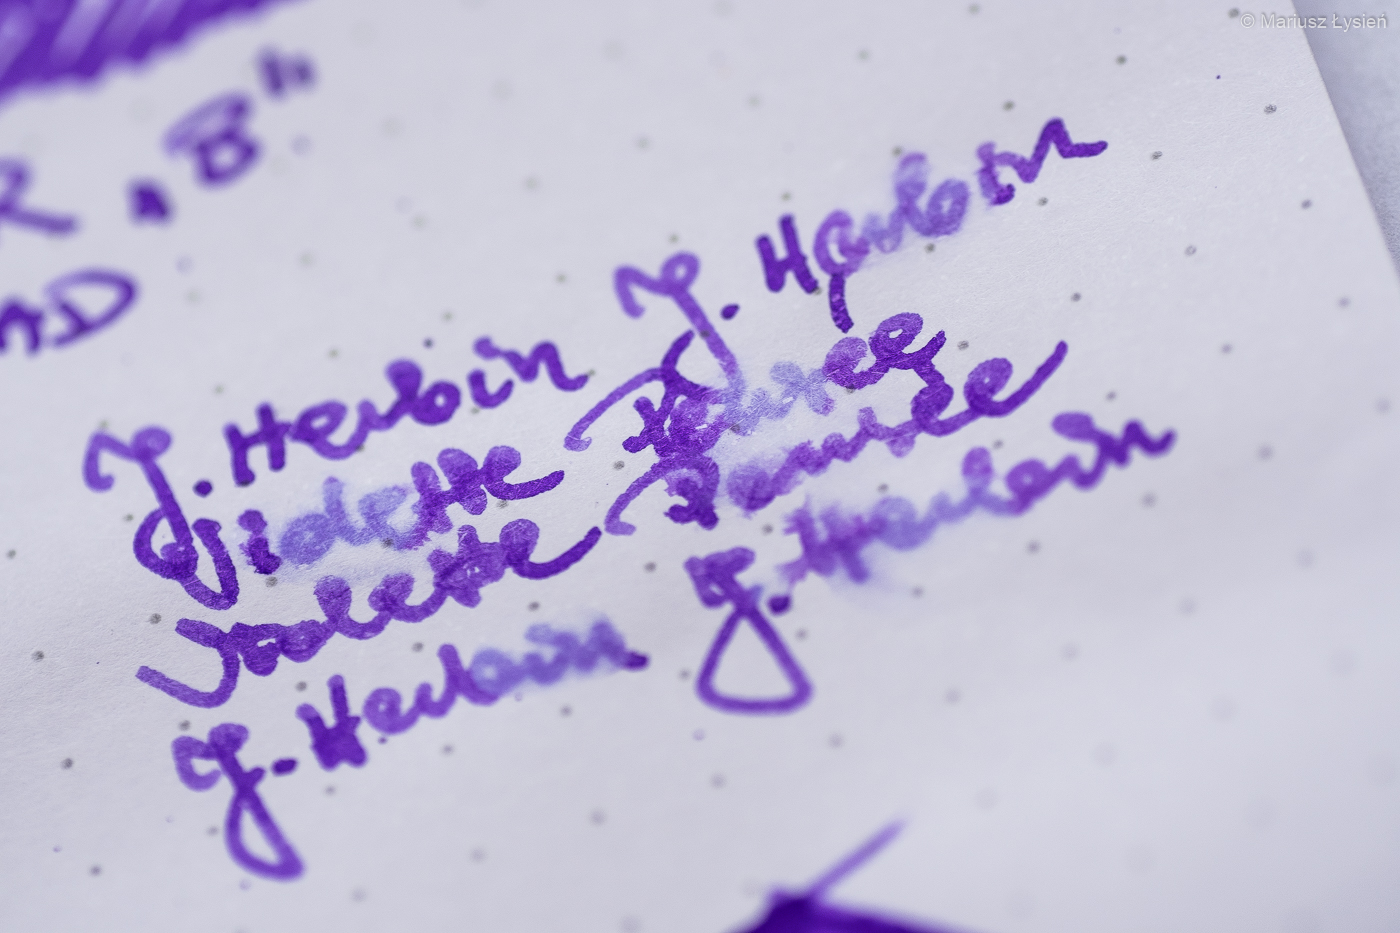 © Mariusz Łysień
R . B"
J. Herbin J. Herbin
Violette Pensée
Violette Pensée
J. Herbin J. Herbin